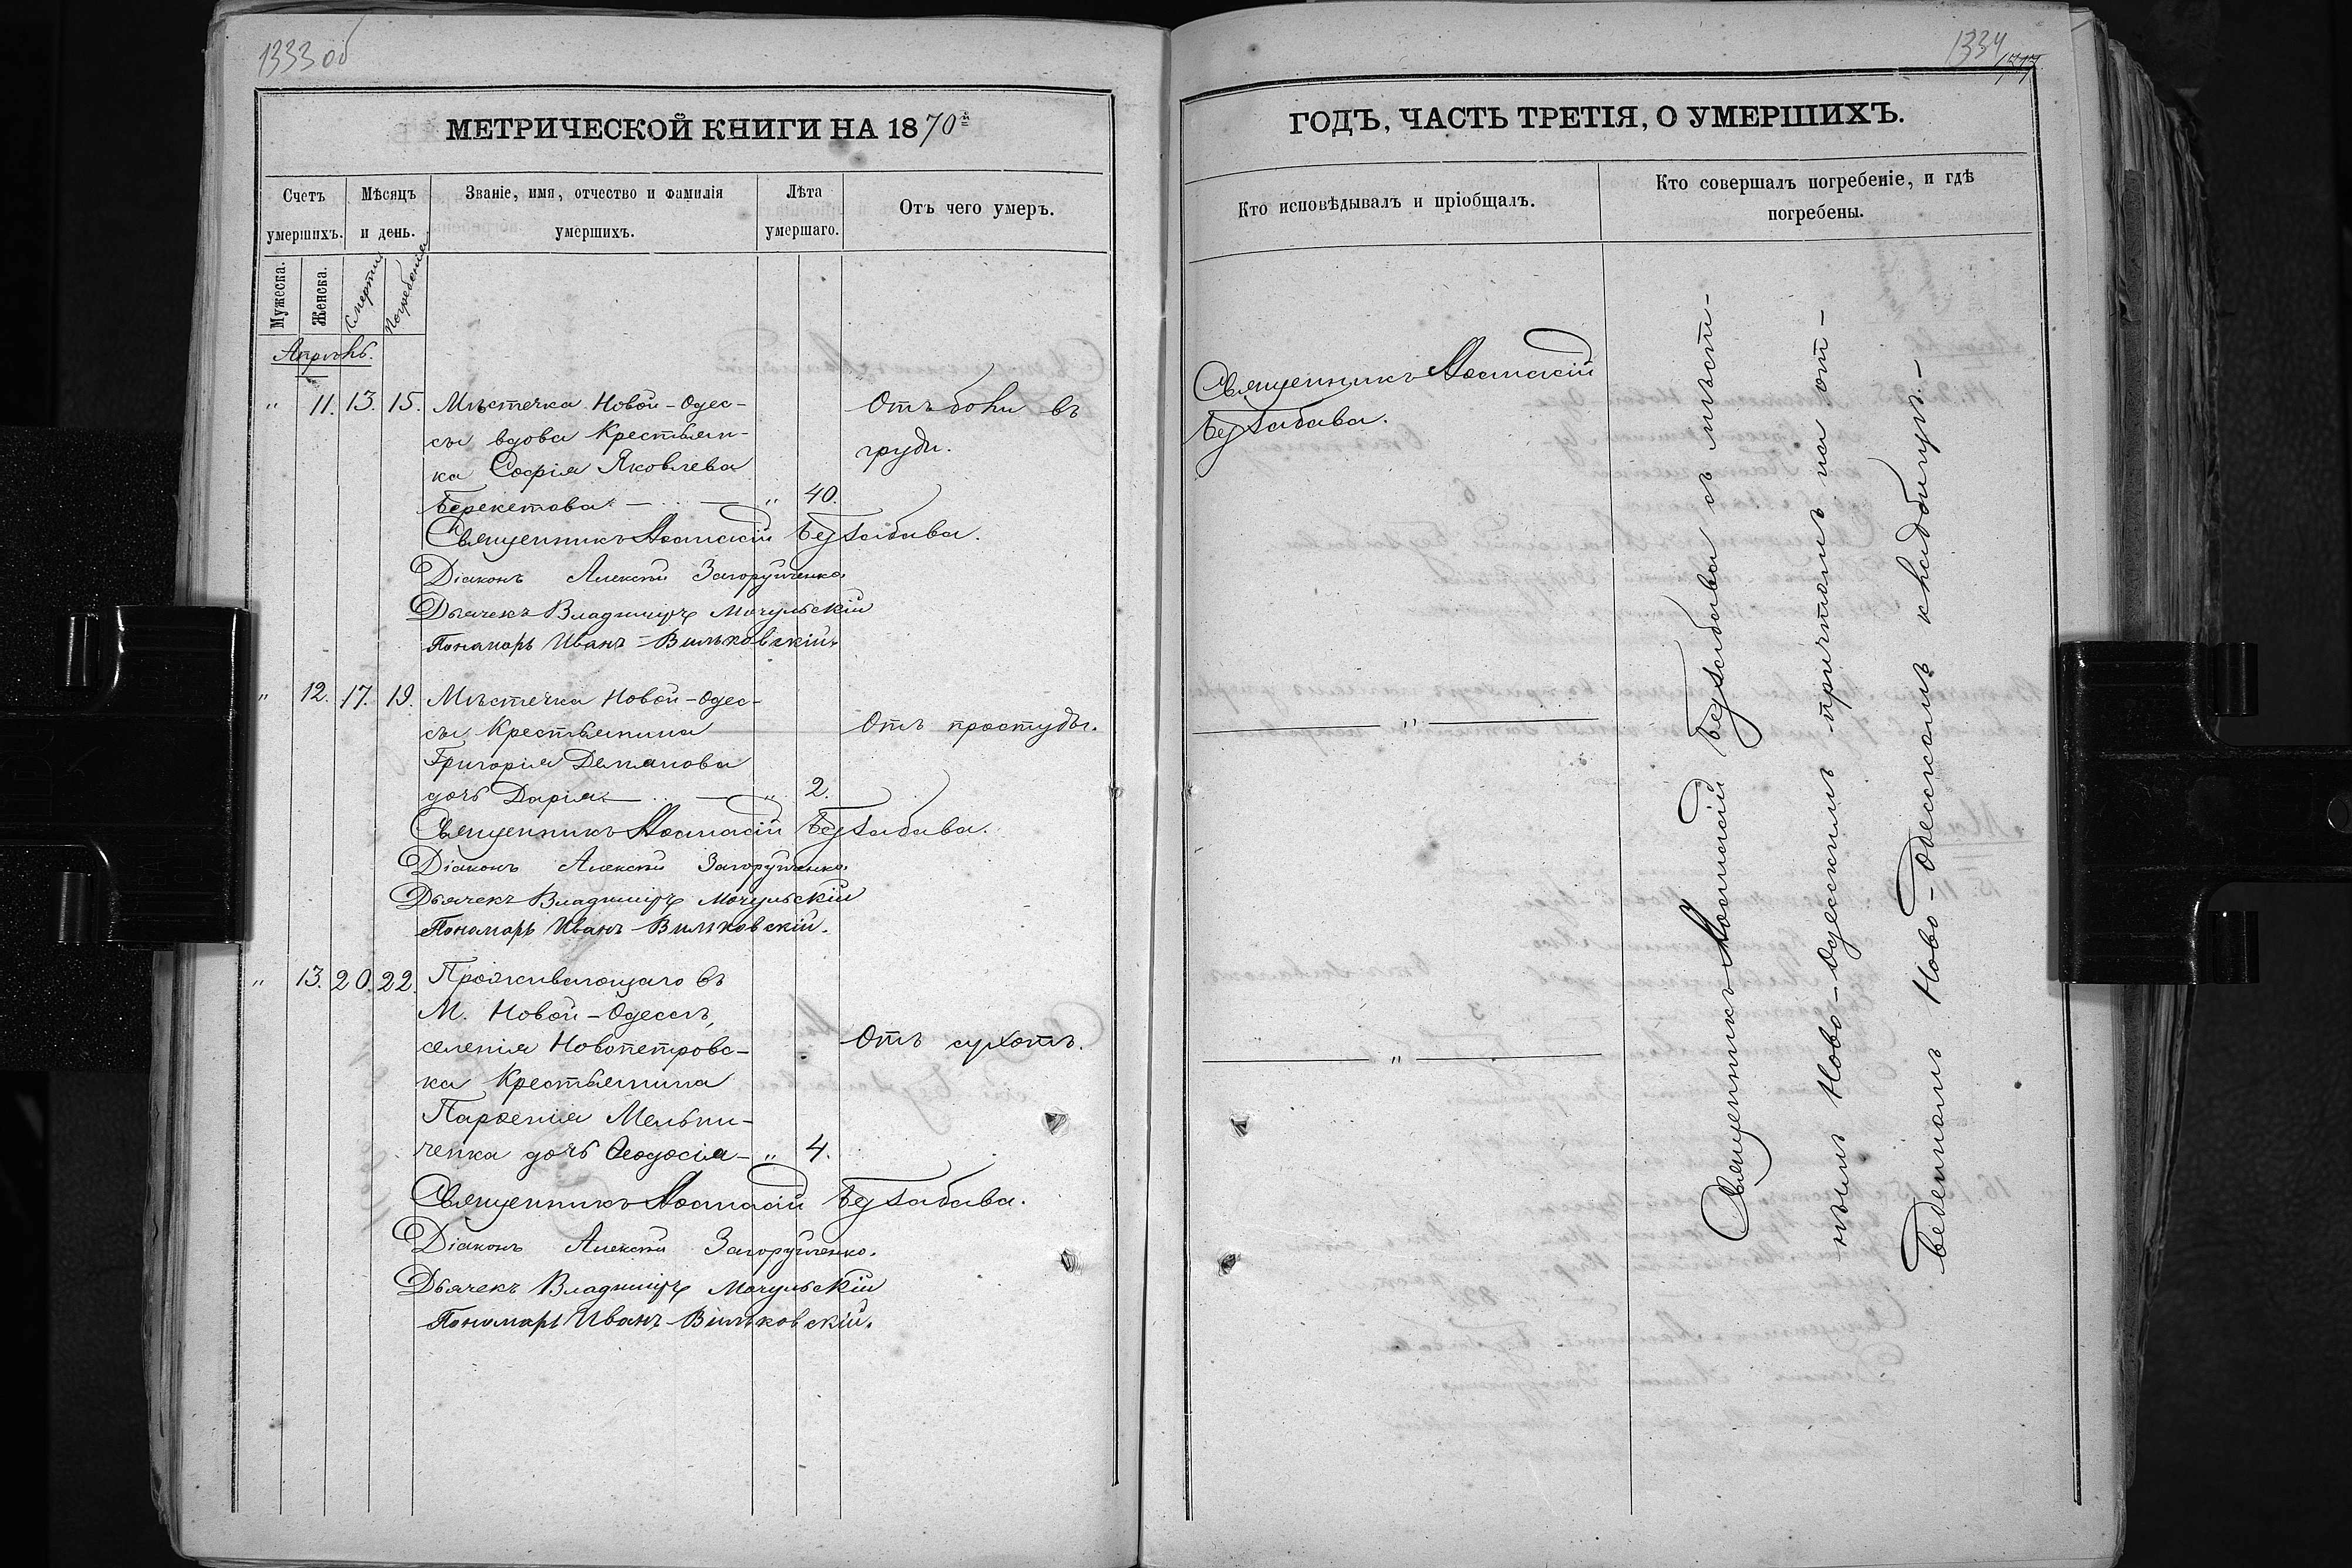 1333 об
МЕТРИЧЕСКОЙ КНИГИ НА 1870й
Счетъ умершихъ.
Мѣсяцъ и день.
Званіе, имя, отчество и фамилія умершихъ.
Лѣта умершаго.
Отъ чего умеръ.
Мужеска.
Женска.
Смерти
Погребенія
Апрѣль.
" 11. 13. 15. Мѣстечка Новой-Одес-
сы вдова Крестьян-
ка Софія Яковлева
Берекетова — " 40.
Отъ боли въ
груди.
Священникъ Аѳанасій Бугзабава.
Діаконъ Алексѣй Загоруйченко.
Дьячекъ Владиміръ Мочульскій
Пономарь Иванъ Вильковскій.
" 12. 17. 19. Мѣстечка Новой-Одес-
сы Крестьянина
Григорія Деманова
дочь Дарія — " 2.
Отъ простуды.
Священникъ Аѳанасій Бугзабава.
Діаконъ Алексѣй Загоруйченко.
Дьячекъ Владиміръ Мочульскій
Пономарь Иванъ Вильковскій.
" 13. 20. 22. Проживающаго въ
М. Новой-Одессѣ,
селенія Новопетровс-
ка Крестьянина
Парѳенія Мельни-
ченка дочь Ѳеодосія — " 4.
Отъ сухотъ.
Священникъ Аѳанасій Бугзабава.
Діаконъ Алексѣй Загоруйченко.
Дьячекъ Владиміръ Мочульскій
Пономарь Иванъ Вильковскій.
1334
ГОДЪ, ЧАСТЬ ТРЕТІЯ, О УМЕРШИХЪ.
Кто исповѣдывалъ и пріобщалъ.
Кто совершалъ погребеніе, и гдѣ
погребены.
Священникъ Аѳанасій
Бугзабава.
— " —
— " —
Священникъ Аѳанасій Бугзабава съ мѣст-
нымъ Ново-Одесскимъ причтомъ на от-
веденномъ Ново-Одесскомъ кладбищѣ.—